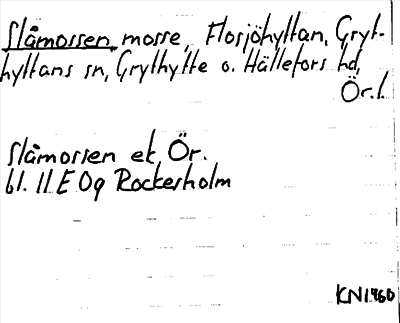 Slåmossen, mosse, Flosjöhyttan, Gryt-
hyttans sn, Grythytte o. Hällefors hd,
Ör. l.
Slåmossen ek Ör.
bl. 11E 0g Rockesholm
KN1960